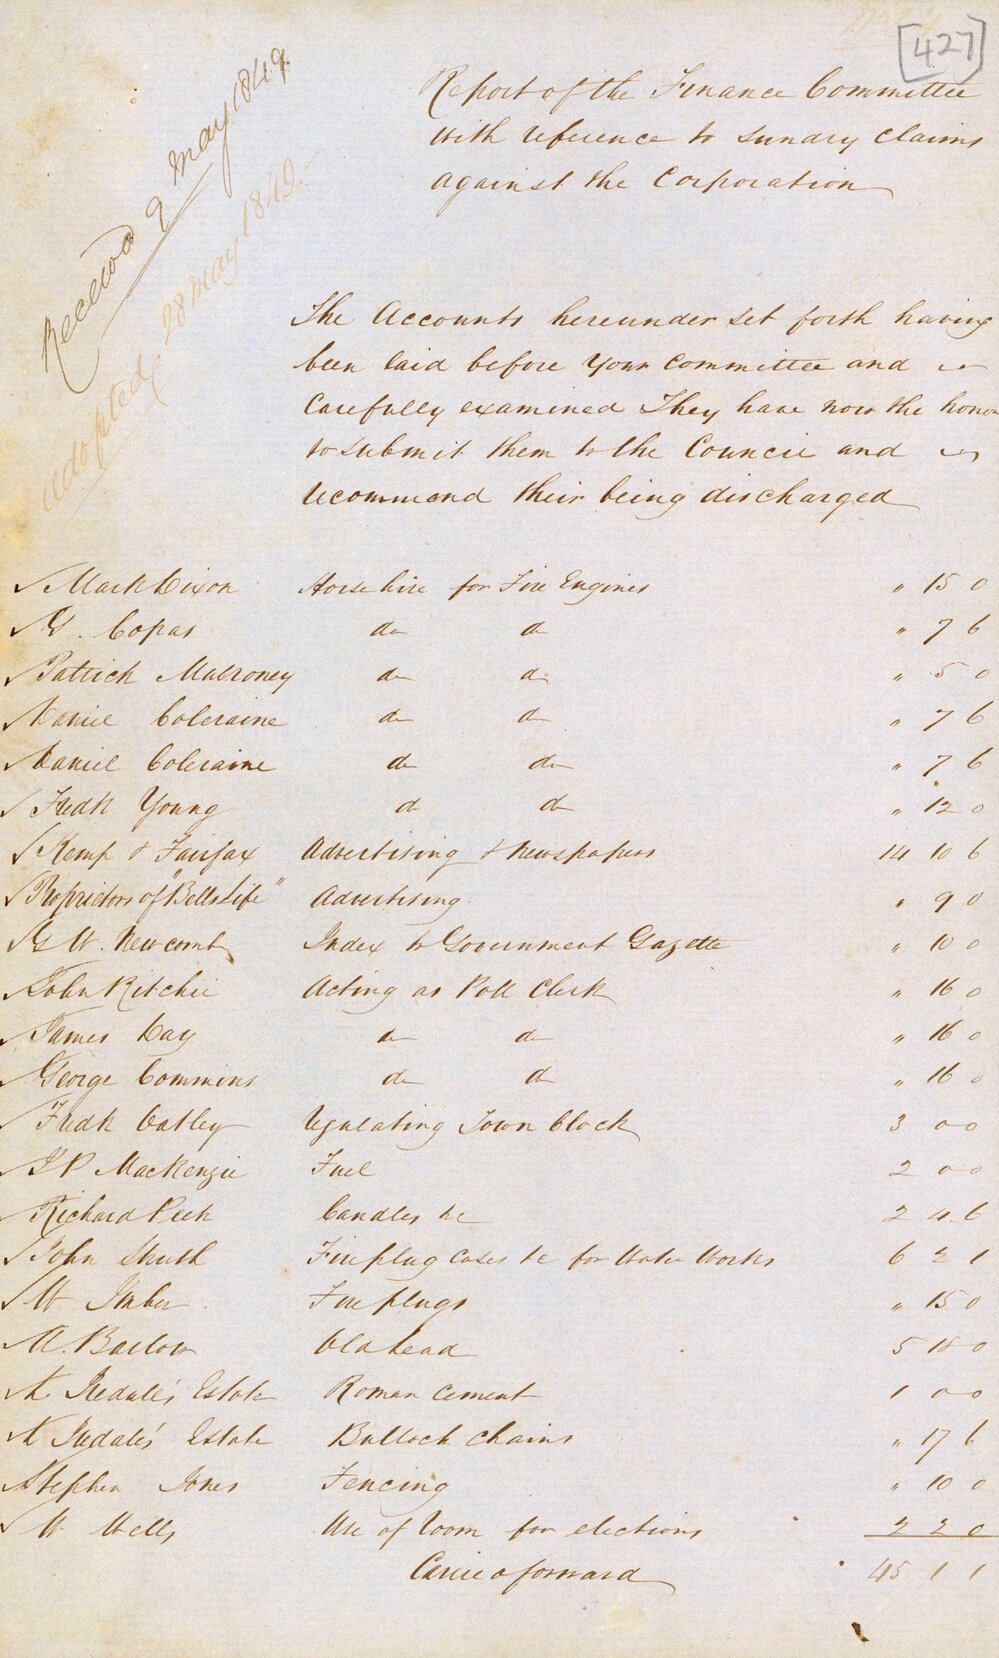 [427]
Received 9 May 1849
Adopted 28 May 1849
Report of the Finance Committee
with reference to Sundry Claims
against the Corporation
The Accounts hereunder set forth having
been laid before Your Committee and
Carefully examined They have now the honor
to submit them to the Council and
recommend their being discharged
Mark Dixon Horse hire for Fire Engines " 15 0
G. Copas do do " 7 6
Patrick Mulroney do do " 5 0
Daniel Coleraine do do " 7 6
Daniel Coleraine do do " 7 6
Fredk Young do do " 12 0
Kemp & Fairfax Advertising & Newspapers 14 10 6
Proprietors of "Bells Life" Advertising " 9 0
G W. Newcomb Index to Government Gazette " 10 0
John Ritchie Acting as Poll Clerk " 16 0
James Day do do " 16 0
George Commins do do " 16 0
Fredk Oatley regulating Town Clock 3 0 0
J P Mackenzie Fuel 2 0 0
Richard Peek Candles &c 2 4 6
John Struth Fireplug cases &c for Water Works 6 2 1
W Imber Fire plugs " 15 0
A. Barlow Old Lead 5 18 0
L Iredale's Estate Roman Cement 1 0 0
L Iredale's Estate Bullock chains " 17 6
Stephen Jones Fencing " 10 0
W. Wells Use of room for elections 2 2 0
Carried forward 45 1 1